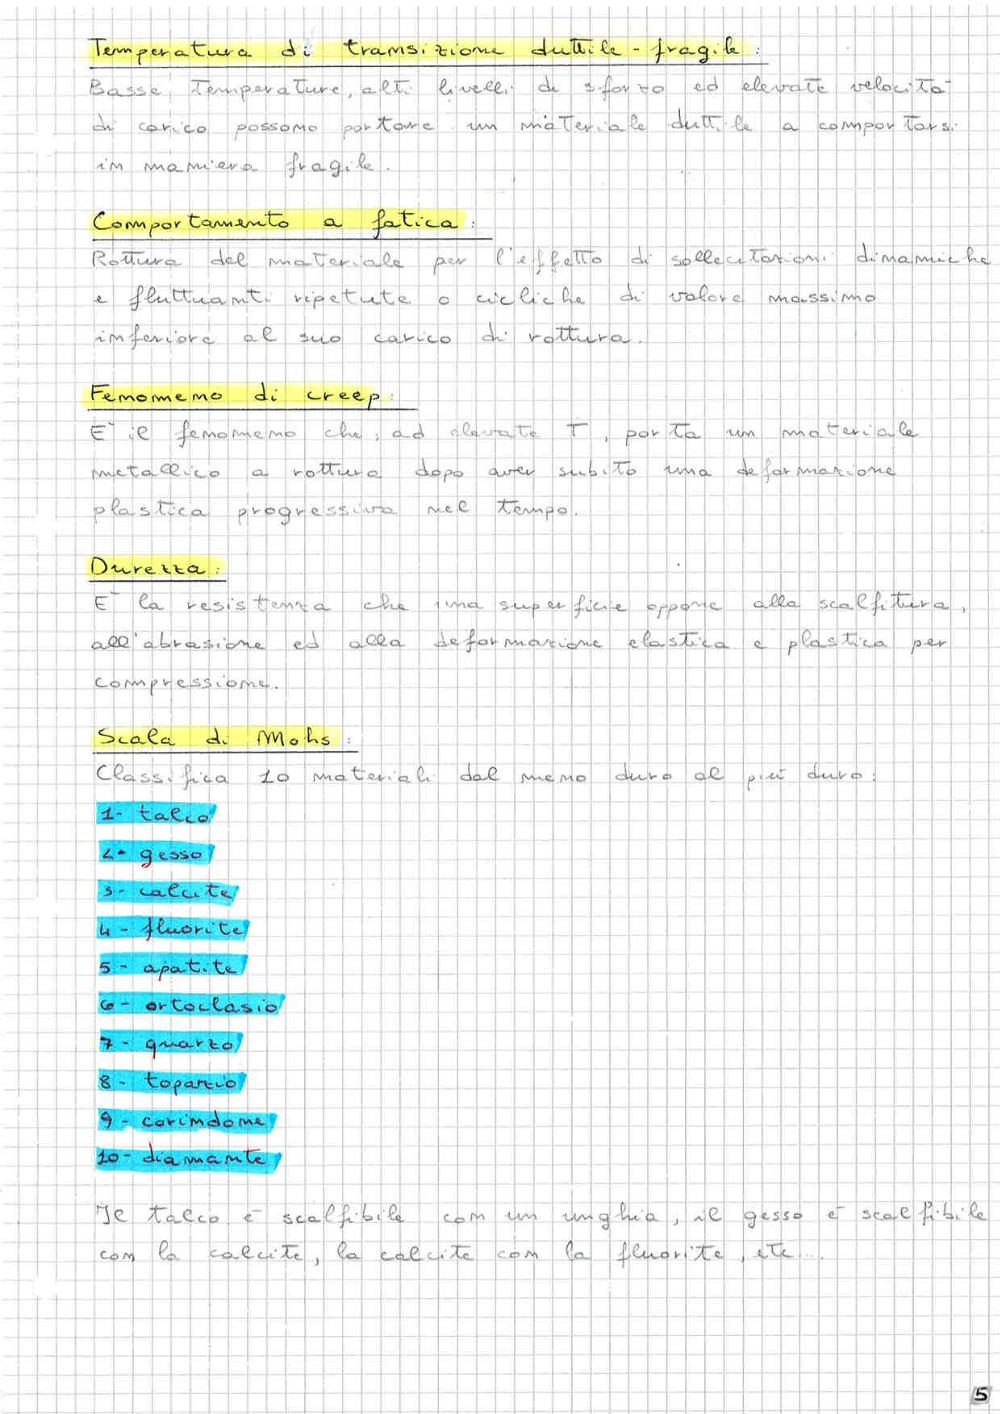 Temperatura di transizione duttile-fragile:
Basse temperature, alti livelli di sforzo ed elevate velocità
di carico possono portare un materiale duttile a comportarsi
in maniera fragile.
Comportamento a fatica:
Rottura del materiale per l'effetto di sollecitazioni dinamiche
e fluttuanti ripetute o cicliche di valore massimo
inferiore al suo carico di rottura.
Fenomeno di creep:
E' il fenomeno che, ad elevate T, porta un materiale
metallico a rottura dopo aver subito una deformazione
plastica progressiva nel tempo.
Durezza:
E' la resistenza che una superficie oppone alla scalfitura,
all'abrasione ed alla deformazione elastica e plastica per
compressione.
Scala di Mohs:
Classifica 10 materiali dal meno duro al più duro:
1- talco
2- gesso
3- calcite
4- fluorite
5- apatite
6- ortoclasio
7- quarzo
8- topazio
9- corindone
10- diamante
Il talco è scalfibile con un unghia, il gesso è scalfibile
con la calcite, la calcite con la fluorite, etc...
5